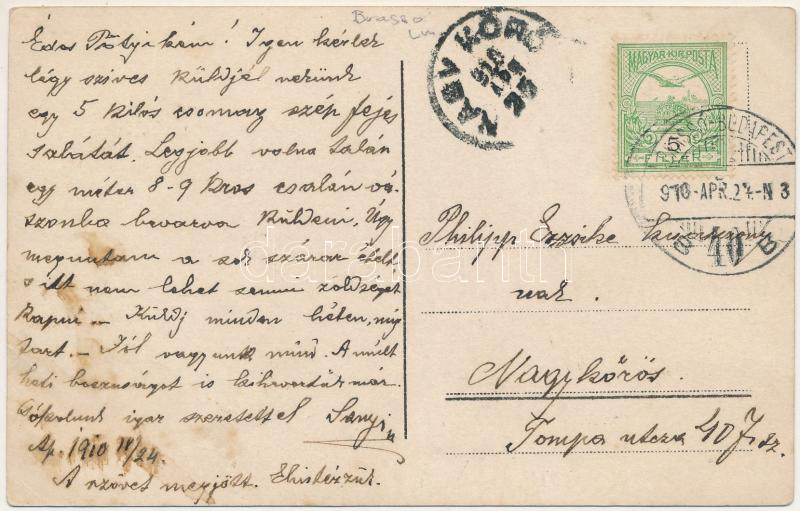 Brassó
Édes Pötyikém! Igen kérlek
légy szives küldjél nekünk
egy 5 kilós csomag szép fejes
salátát. Legjobb volna talán
egy méter 8-9 kros csalán vá-
szonba bevarva küldeni. Úgy
meguntam a sok száraz ételt
s itt nem lehet semmi zöldséget
kapni. – Küldj minden héten, míg
tart. – Jól vagyunk mind. A múlt
heti boszuságot is kihevertük már.
Csókolunk igaz szeretettel Sanyi
Ap. 1910 IV/24.
A szövet megjött.
NAGY KŐRÖ
910 APR 25
MAGYAR KIR. POSTA
5
BRASSÓ-BUDAPEST
910-APR.24-N 3
40 B
Philipp Erzsike kisasszony
nak.
Nagykőrös.
Tompa utcza 40 sz.
darabanth